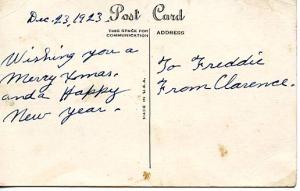 Dec. 23, 1923
Post Card
THIS SPACE FOR
COMMUNICATION
ADDRESS
Wishing you a
Merry Xmas.
and a Happy
New Year.
MADE IN U.S.A.
To Freddie
From Clarence.